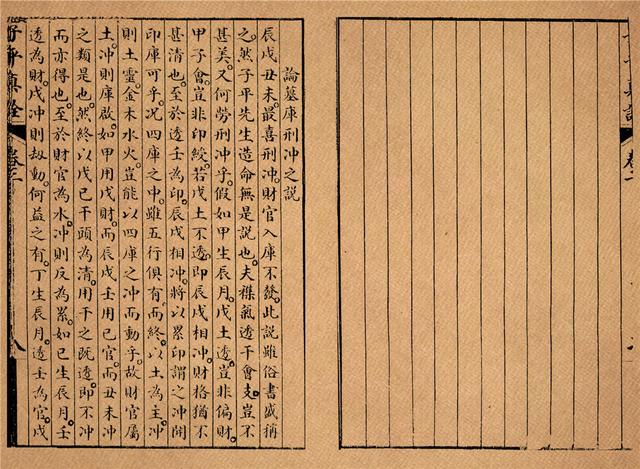 論墓庫刑冲之説
辰戌丑未。最喜刑冲。財官入庫不發。此説雖俗書盛稱
之。然子平先生造命無是説也。夫襍氣透干會支。豈不
甚美。又何勞刑冲乎。假如甲生辰月。戊土透。豈非偏財。
甲子會。豈非印綬。若戊土不透。即辰戌相冲。財格猶不
甚清也。至於透壬為印。辰戌相冲。將以累印。謂之冲開
印庫可乎。况四庫之中。雖五行俱有。而終以土為主。冲
則土靈。金木水火。豈能以四庫之冲而動乎。故財官屬
土。冲則庫啟。如甲用戊財。而辰戌壬用己官。而丑未冲
之類是也。然終以戊己干頭為清。用干之既透。即不冲
而亦得也。至於財官為水。冲則反為累。如己生辰月。壬
透為財。戌冲則刼動。何益之有。丁生辰月。透壬為官。戌
子平真詮 卷二 八